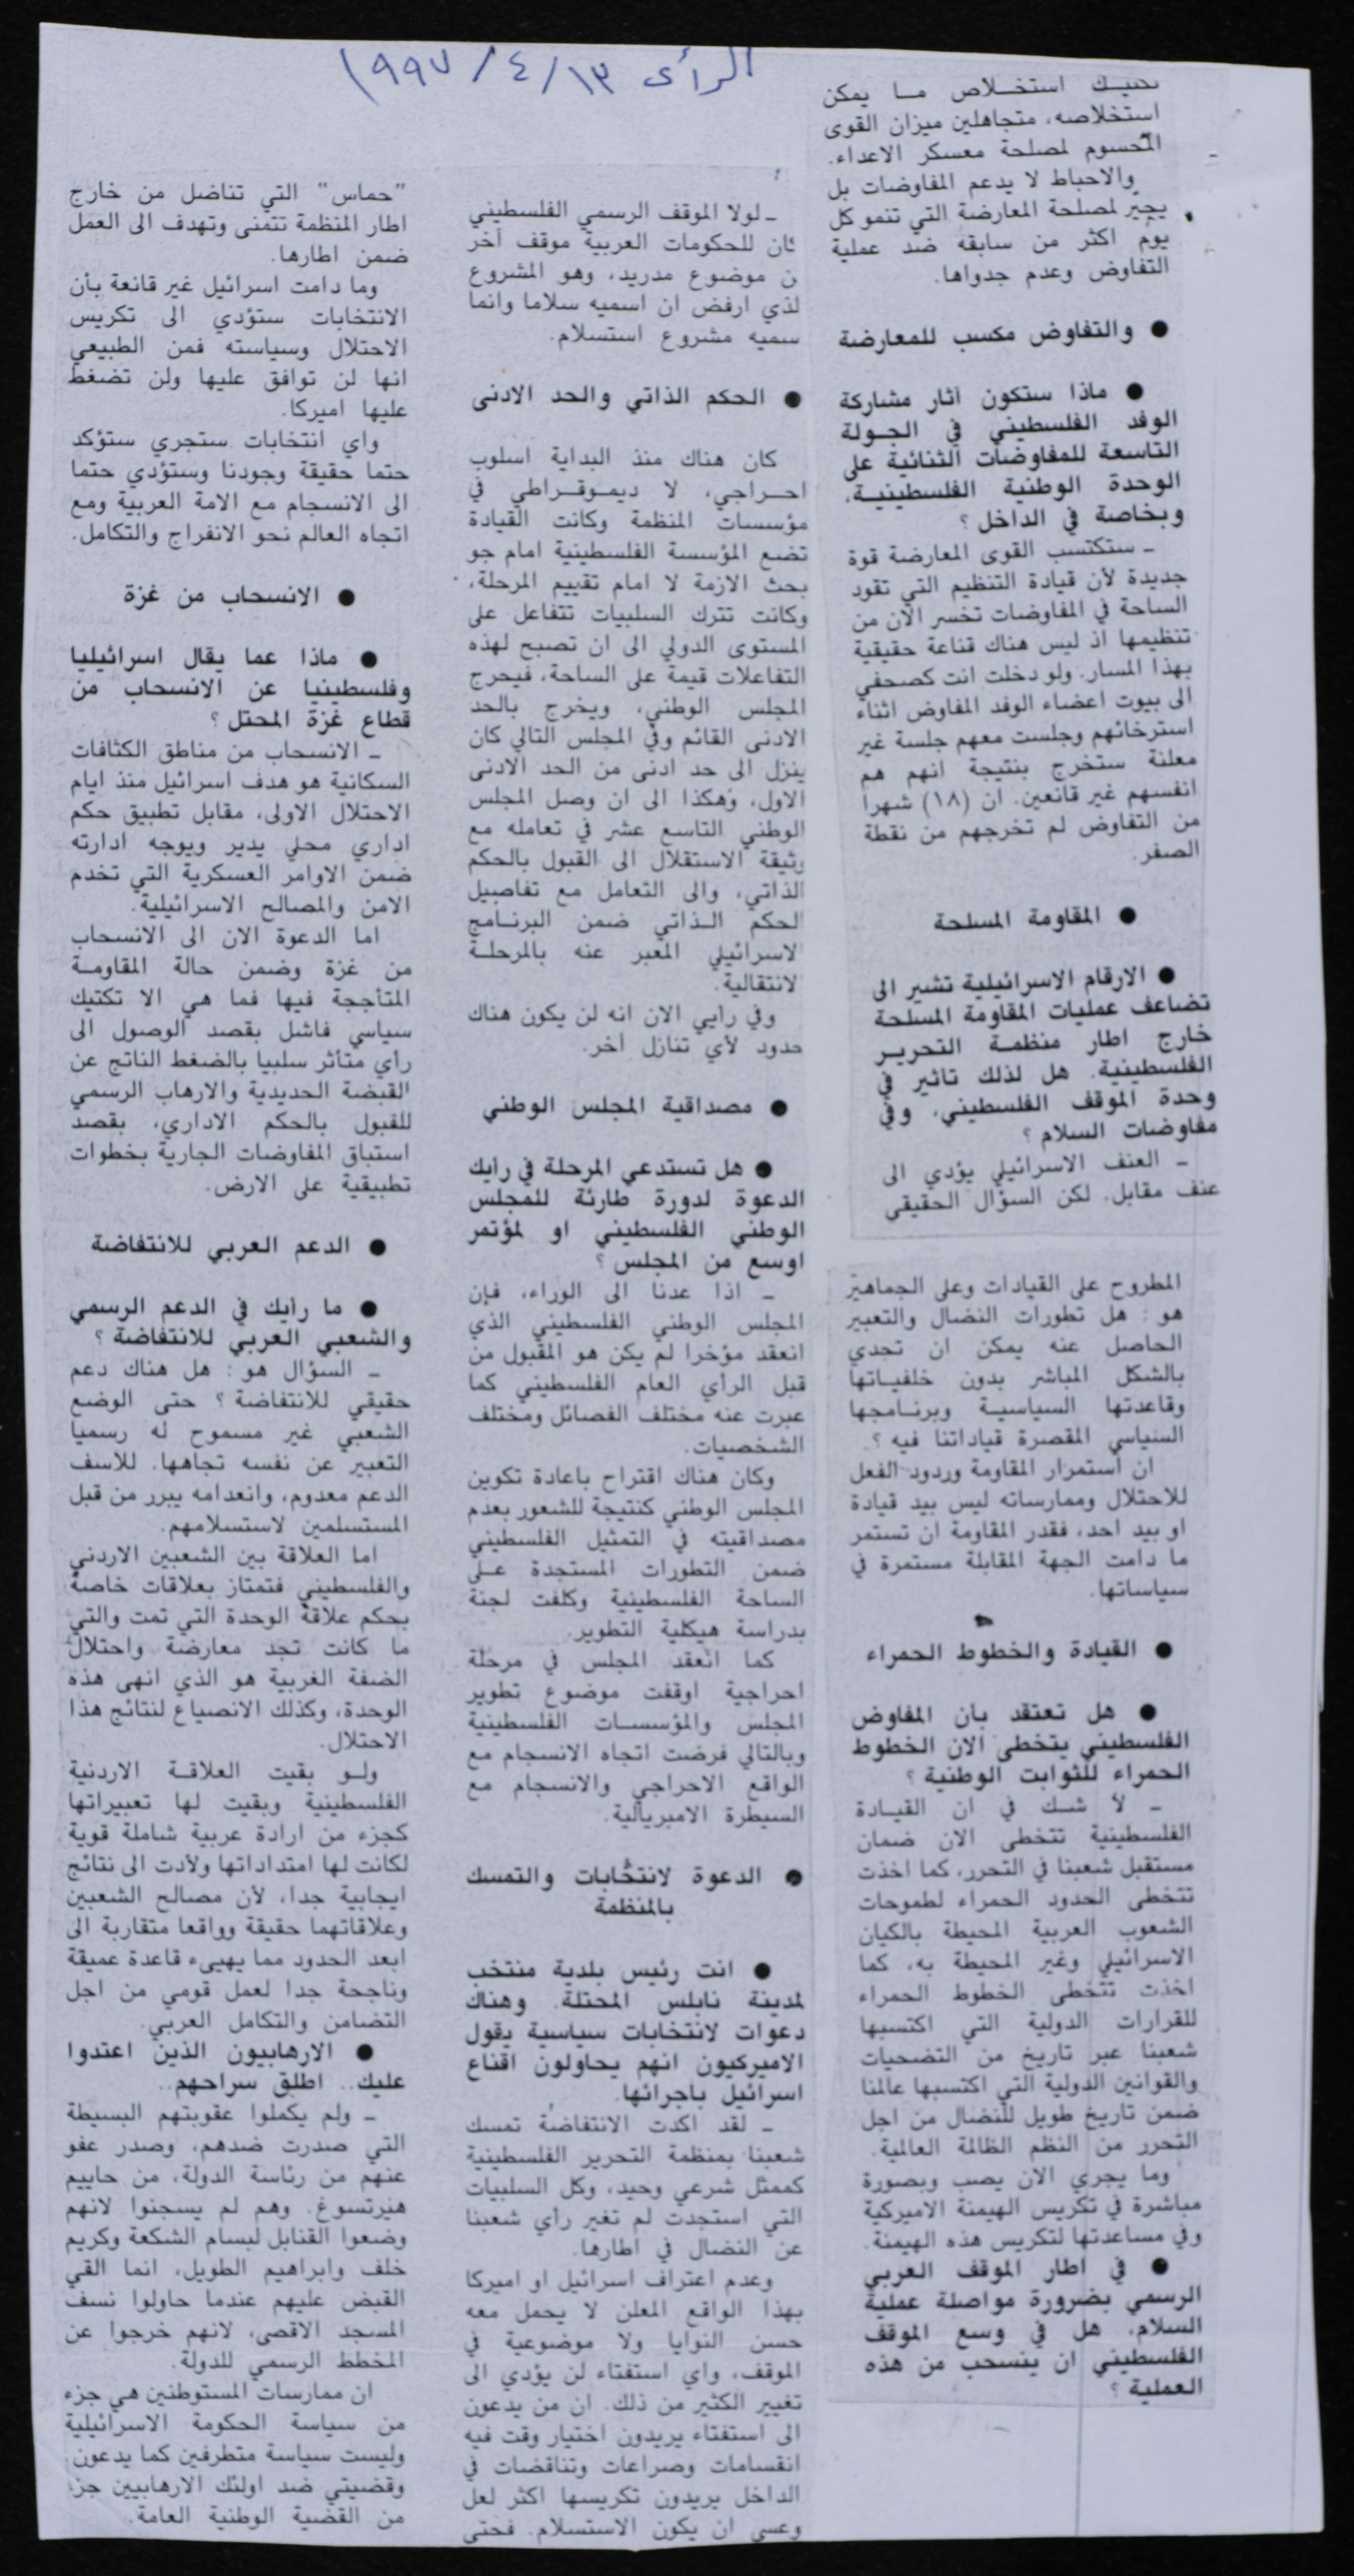 الرأي ١٣/٤/١٩٩٧
تكتيك استخلاص ما يمكن
استخلاصه، متجاهلين ميزان القوى
المحسوم لمصلحة معسكر الاعداء.
والاحباط لا يدعم المفاوضات بل
يجيّر لمصلحة المعارضة التي تنمو كل
يوم اكثر من سابقه ضد عملية
التفاوض وعدم جدواها.
● والتفاوض مكسب للمعارضة
● ماذا ستكون آثار مشاركة
الوفد الفلسطيني في الجولة
التاسعة للمفاوضات الثنائية على
الوحدة الوطنية الفلسطينية،
وبخاصة في الداخل ؟
ـ ستكتسب القوى المعارضة قوة
جديدة لأن قيادة التنظيم التي تقود
الساحة في المفاوضات تخسر الآن من
تنظيمها اذ ليس هناك قناعة حقيقية
بهذا المسار. ولو دخلت انت كصحفي
الى بيوت اعضاء الوفد المفاوض اثناء
استرخائهم وجلست معهم جلسة غير
معلنة ستخرج بنتيجة انهم هم
انفسهم غير قانعين. ان (١٨) شهرا
من التفاوض لم تخرجهم من نقطة
الصفر.
● المقاومة المسلحة
● الارقام الاسرائيلية تشير الى
تضاعف عمليات المقاومة المسلحة
خارج اطار منظمة التحرير
الفلسطينية. هل لذلك تاثير في
وحدة الموقف الفلسطيني، وفي
مفاوضات السلام ؟
ـ العنف الاسرائيلي يؤدي الى
عنف مقابل. لكن السؤال الحقيقي
المطروح على القيادات وعلى الجماهير
هو : هل تطورات النضال والتعبير
الحاصل عنه يمكن ان تجدي
بالشكل المباشر بدون خلفياتها
وقاعدتها السياسية وبرنامجها
السياسي المقصرة قياداتنا فيه ؟.
ان استمرار المقاومة وردود الفعل
للاحتلال وممارساته ليس بيد قيادة
او بيد احد، فقدر المقاومة ان تستمر
ما دامت الجهة المقابلة مستمرة في
سياساتها.
● القيادة والخطوط الحمراء
● هل تعتقد بأن المفاوض
الفلسطيني يتخطى الآن الخطوط
الحمراء للثوابت الوطنية ؟
ـ لا شك في ان القيادة
الفلسطينية تتخطى الآن ضمان
مستقبل شعبنا في التحرر، كما اخذت
تتخطى الحدود الحمراء لطموحات
الشعوب العربية المحيطة بالكيان
الاسرائيلي وغير المحيطة به، كما
اخذت تتخطى الخطوط الحمراء
للقرارات الدولية التي اكتسبها
شعبنا عبر تاريخ من التضحيات
والقوانين الدولية التي اكتسبها عالمنا
ضمن تاريخ طويل للنضال من اجل
التحرر من النظم الظالمة العالمية.
وما يجري الآن يصب وبصورة
مباشرة في تكريس الهيمنة الاميركية
وفي مساعدتها لتكريس هذه الهيمنة.
● في اطار الموقف العربي
الرسمي بضرورة مواصلة عملية
السلام، هل في وسع الموقف
الفلسطيني ان ينسحب من هذه
العملية ؟
ـ لولا الموقف الرسمي الفلسطيني
كان للحكومات العربية موقف آخر
ن موضوع مدريد، وهو المشروع
لذي ارفض ان اسميه سلاما وانما
سميه مشروع استسلام.
● الحكم الذاتي والحد الادنى
كان هناك منذ البداية اسلوب
احراجي، لا ديموقراطي في
مؤسسات المنظمة وكانت القيادة
تضع المؤسسة الفلسطينية امام جو
بحث الازمة لا امام تقييم المرحلة،
وكانت تترك السلبيات تتفاعل على
المستوى الدولي الى ان تصبح لهذه
التفاعلات قيمة على الساحة، فيحرج
المجلس الوطني، ويخرج بالحد
الادنى القائم وفي المجلس التالي كان
ينزل الى حد ادنى من الحد الادنى
الاول، وهكذا الى ان وصل المجلس
الوطني التاسع عشر في تعامله مع
وثيقة الاستقلال الى القبول بالحكم
الذاتي، والى التعامل مع تفاصيل
الحكم الذاتي ضمن البرنامج
لاسرائيلي المعبر عنه بالمرحلة
لانتقالية.
وفي رأيي الآن انه لن يكون هناك
حدود لأي تنازل آخر.
● مصداقية المجلس الوطني
● هل تستدعي المرحلة في رأيك
الدعوة لدورة طارئة للمجلس
الوطني الفلسطيني او لمؤتمر
اوسع من المجلس ؟
ـ اذا عدنا الى الوراء، فإن
المجلس الوطني الفلسطيني الذي
انعقد مؤخرا لم يكن هو المقبول من
قبل الرأي العام الفلسطيني كما
عبرت عنه مختلف الفصائل ومختلف
الشخصيات.
وكان هناك اقتراح باعادة تكوين
المجلس الوطني كنتيجة للشعور بعدم
مصداقيته في التمثيل الفلسطيني
ضمن التطورات المستجدة على
الساحة الفلسطينية وكلفت لجنة
بدراسة هيكلية التطوير.
كما انعقد المجلس في مرحلة
احراجية اوقفت موضوع تطوير
المجلس والمؤسسات الفلسطينية
وبالتالي فرضت اتجاه الانسجام مع
الواقع الاحراجي والانسجام مع
السيطرة الامبريالية.
● الدعوة لانتخابات والتمسك
بالمنظمة
● انت رئيس بلدية منتخب
لمدينة نابلس المحتلة. وهناك
دعوات لانتخابات سياسية يقول
الاميركيون انهم يحاولون اقناع
اسرائيل باجرائها.
ـ لقد اكدت الانتفاضة تمسك
شعبنا بمنظمة التحرير الفلسطينية
كممثل شرعي وحيد، وكل السلبيات
التي استجدت لم تغير رأي شعبنا
عن النضال في اطارها.
وعدم اعتراف اسرائيل او اميركا
بهذا الواقع المعلن لا يحمل معه
حسن النوايا ولا موضوعية في
الموقف، واي استفتاء لن يؤدي الى
تغيير الكثير من ذلك. ان من يدعون
الى استفتاء يريدون اختيار وقت فيه
انقسامات وصراعات وتناقضات في
الداخل يريدون تكريسها اكثر لعل
وعسى ان يكون الاستسلام. فحتى
"حماس" التي تناضل من خارج
اطار المنظمة تتمنى وتهدف الى العمل
ضمن اطارها.
وما دامت اسرائيل غير قانعة بأن
الانتخابات ستؤدي الى تكريس
الاحتلال وسياسته فمن الطبيعي
انها لن توافق عليها ولن تضغط
عليها اميركا.
واي انتخابات ستجري ستؤكد
حتما حقيقة وجودنا وستؤدي حتما
الى الانسجام مع الامة العربية ومع
اتجاه العالم نحو الانفراج والتكامل.
● الانسحاب من غزة
● ماذا عما يقال اسرائيليا
وفلسطينيا عن الانسحاب من
قطاع غزة المحتل ؟
ـ الانسحاب من مناطق الكثافات
السكانية هو هدف اسرائيل منذ ايام
الاحتلال الاولى، مقابل تطبيق حكم
اداري محلي يدير ويوجه ادارته
ضمن الاوامر العسكرية التي تخدم
الامن والمصالح الاسرائيلية.
اما الدعوة الآن الى الانسحاب
من غزة وضمن حالة المقاومة
المتأججة فيها فما هي الا تكتيك
سياسي فاشل بقصد الوصول الى
رأي متأثر سلبيا بالضغط الناتج عن
القبضة الحديدية والارهاب الرسمي
للقبول بالحكم الاداري، بقصد
استباق المفاوضات الجارية بخطوات
تطبيقية على الارض.
● الدعم العربي للانتفاضة
● ما رأيك في الدعم الرسمي
والشعبي العربي للانتفاضة ؟
ـ السؤال هو : هل هناك دعم
حقيقي للانتفاضة ؟ حتى الوضع
الشعبي غير مسموح له رسميا
التعبير عن نفسه تجاهها. للاسف
الدعم معدوم، وانعدامه يبرر من قبل
المستسلمين لاستسلامهم.
اما العلاقة بين الشعبين الاردني
والفلسطيني فتمتاز بعلاقات خاصة
بحكم علاقة الوحدة التي تمت والتي
ما كانت تجد معارضة واحتلال
الضفة الغربية هو الذي انهى هذه
الوحدة، وكذلك الانصياع لنتائج هذا
الاحتلال.
ولو بقيت العلاقة الاردنية
الفلسطينية وبقيت لها تعبيراتها
كجزء من ارادة عربية شاملة قوية
لكانت لها امتداداتها ولأدت الى نتائج
ايجابية جدا، لأن مصالح الشعبين
وعلاقاتهما حقيقة وواقعا متقاربة الى
ابعد الحدود مما يهيىء قاعدة عميقة
وناجحة جدا لعمل قومي من اجل
التضامن والتكامل العربي.
● الارهابيون الذين اعتدوا
عليك.. اطلق سراحهم..
ـ ولم يكملوا عقوبتهم البسيطة
التي صدرت ضدهم، وصدر عفو
عنهم من رئاسة الدولة، من حاييم
هيرتسوغ. وهم لم يسجنوا لانهم
وضعوا القنابل لبسام الشكعة وكريم
خلف وابراهيم الطويل، انما القي
القبض عليهم عندما حاولوا نسف
المسجد الاقصى، لانهم خرجوا عن
المخطط الرسمي للدولة.
ان ممارسات المستوطنين هي جزء
من سياسة الحكومة الاسرائيلية
وليست سياسة متطرفين كما يدعون.
وقضيتي ضد اولئك الارهابيين جزء
من القضية الوطنية العامة.